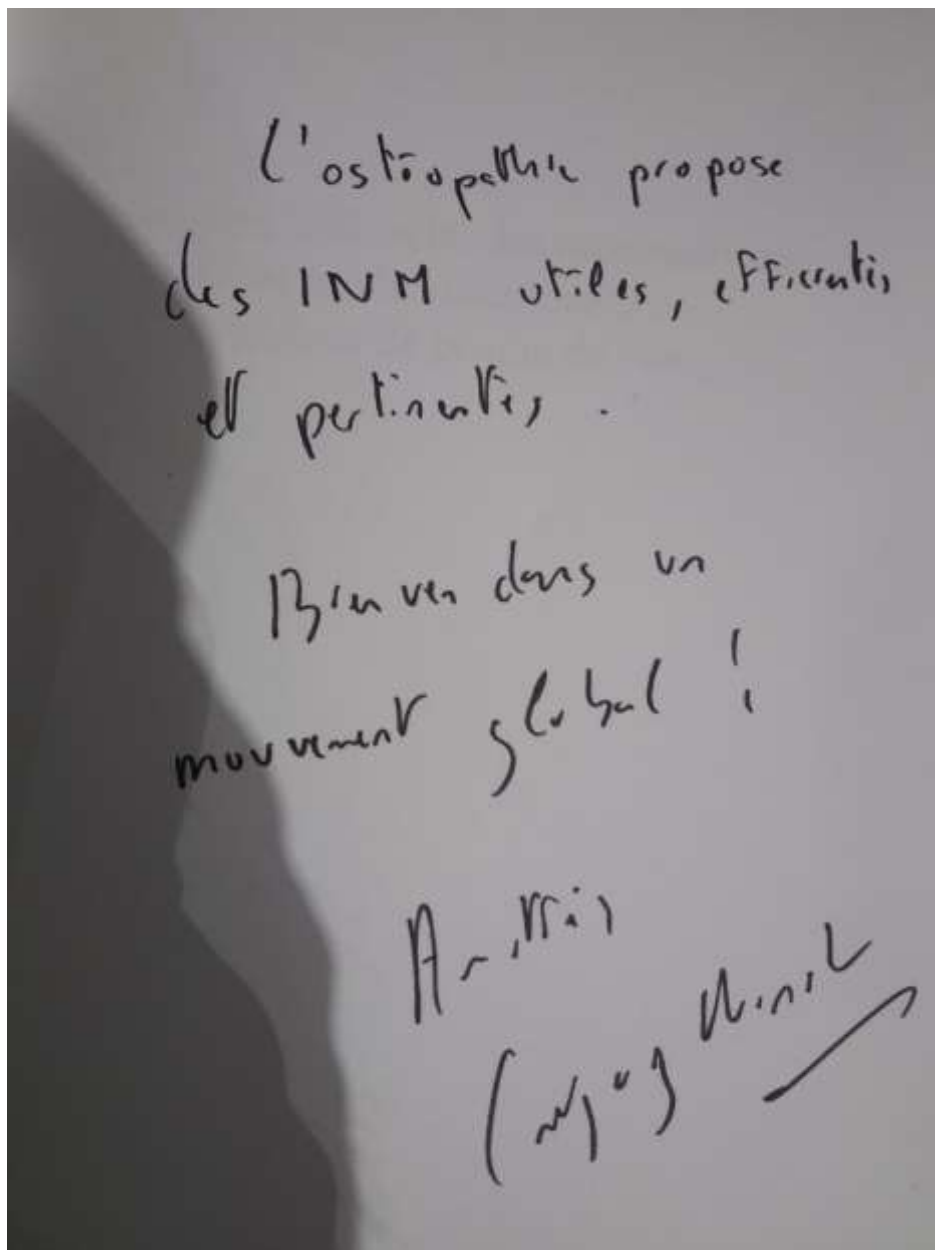 L'ostéopathie propose
des INM utiles, efficientes
et pertinentes.
Bienven dans un
mouvement global !
Amitiés